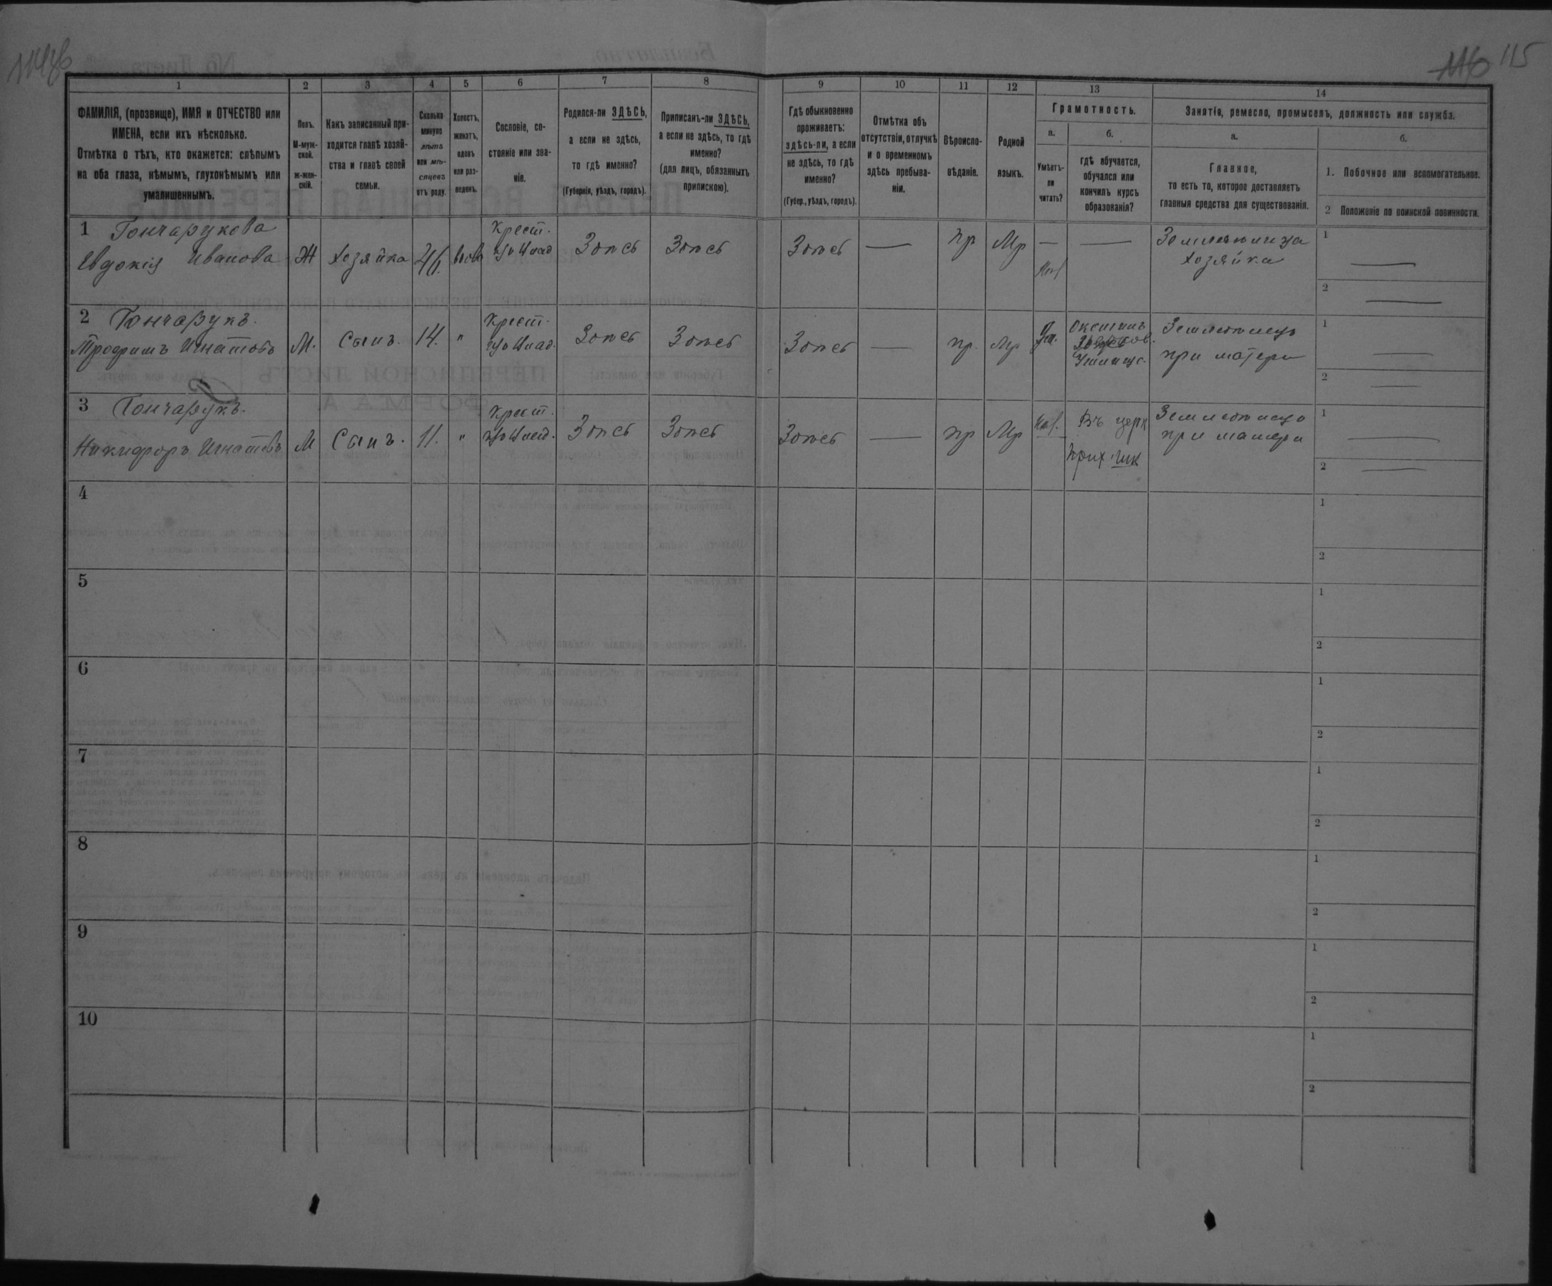 115
1 2 3 4 5 6 7 8 9 10 11 12 13 14
ФАМИЛІЯ, (прозвище), ИМЯ и ОТЧЕСТВО или
ИМЕНА, если ихъ нѣсколько.
Отмѣтка о тѣхъ, кто окажется: слѣпымъ
на оба глаза, нѣмымъ, глухонѣмымъ или
умалишеннымъ.
Полъ.
М-муж-
ской.
ж-жен-
скій.
Какъ записанный при-
ходится главѣ хозяй-
ства и главѣ своей
семьи.
Сколько
минуло
лѣтъ
или мѣ-
сяцевъ
отъ роду.
Холостъ,
женатъ,
вдовъ
или раз-
веденъ.
Сословіе, со-
стояніе или зва-
ніе.
Родился-ли ЗДѢСЬ,
а если не здѣсь,
то гдѣ именно?
(Губернія, уѣздъ, городъ).
Приписанъ-ли ЗДѢСЬ,
а если не здѣсь, то гдѣ
именно?
(для лицъ, обязанныхъ
припискою).
Гдѣ обыкновенно
проживаетъ:
здѣсь-ли, а если
не здѣсь, то гдѣ
именно?
(Губер., уѣздъ, городъ).
Отмѣтка объ
отсутствіи, отлучкѣ
и о временномъ
здѣсь пребыва-
ніи.
Вѣроиспо-
вѣданіе.
Родной
языкъ.
Грамотность.
а.
Умѣетъ-
ли
читать?
б.
гдѣ обучается,
обучался или
кончилъ курсъ
образованія?
Занятія, ремесло, промыселъ, должность или служба.
а.
Главное,
то есть то, которое доставляетъ
главныя средства для существованія.
б.
1. Побочное или вспомогательное.
2 Положеніе по воинской повинности.
1 Гончарукова
Евдокія Иванова
Ж
Хозяйка
46
вдов
Крест.
Здѣсь
Здѣсь
Здѣсь
—
пр
Мр
—
—
хозяйка
1 —
2 —
2 Гончарукъ.
Трофимъ Игнатовъ
М.
Сынъ.
14.
"
Крест.
Здѣсь
Здѣсь
Здѣсь
—
пр.
Мр
при матери
1 —
2 —
3 Гончарукъ.
Никифоръ Игнатовъ
М
Сынъ.
11.
"
Крест.
Здѣсь
Здѣсь
Здѣсь
—
пр
Мр
Въ церк
прих
при матери
1 —
2 —
4
1
2
5
1
2
6
1
2
7
1
2
8
1
2
9
1
2
10
1
2